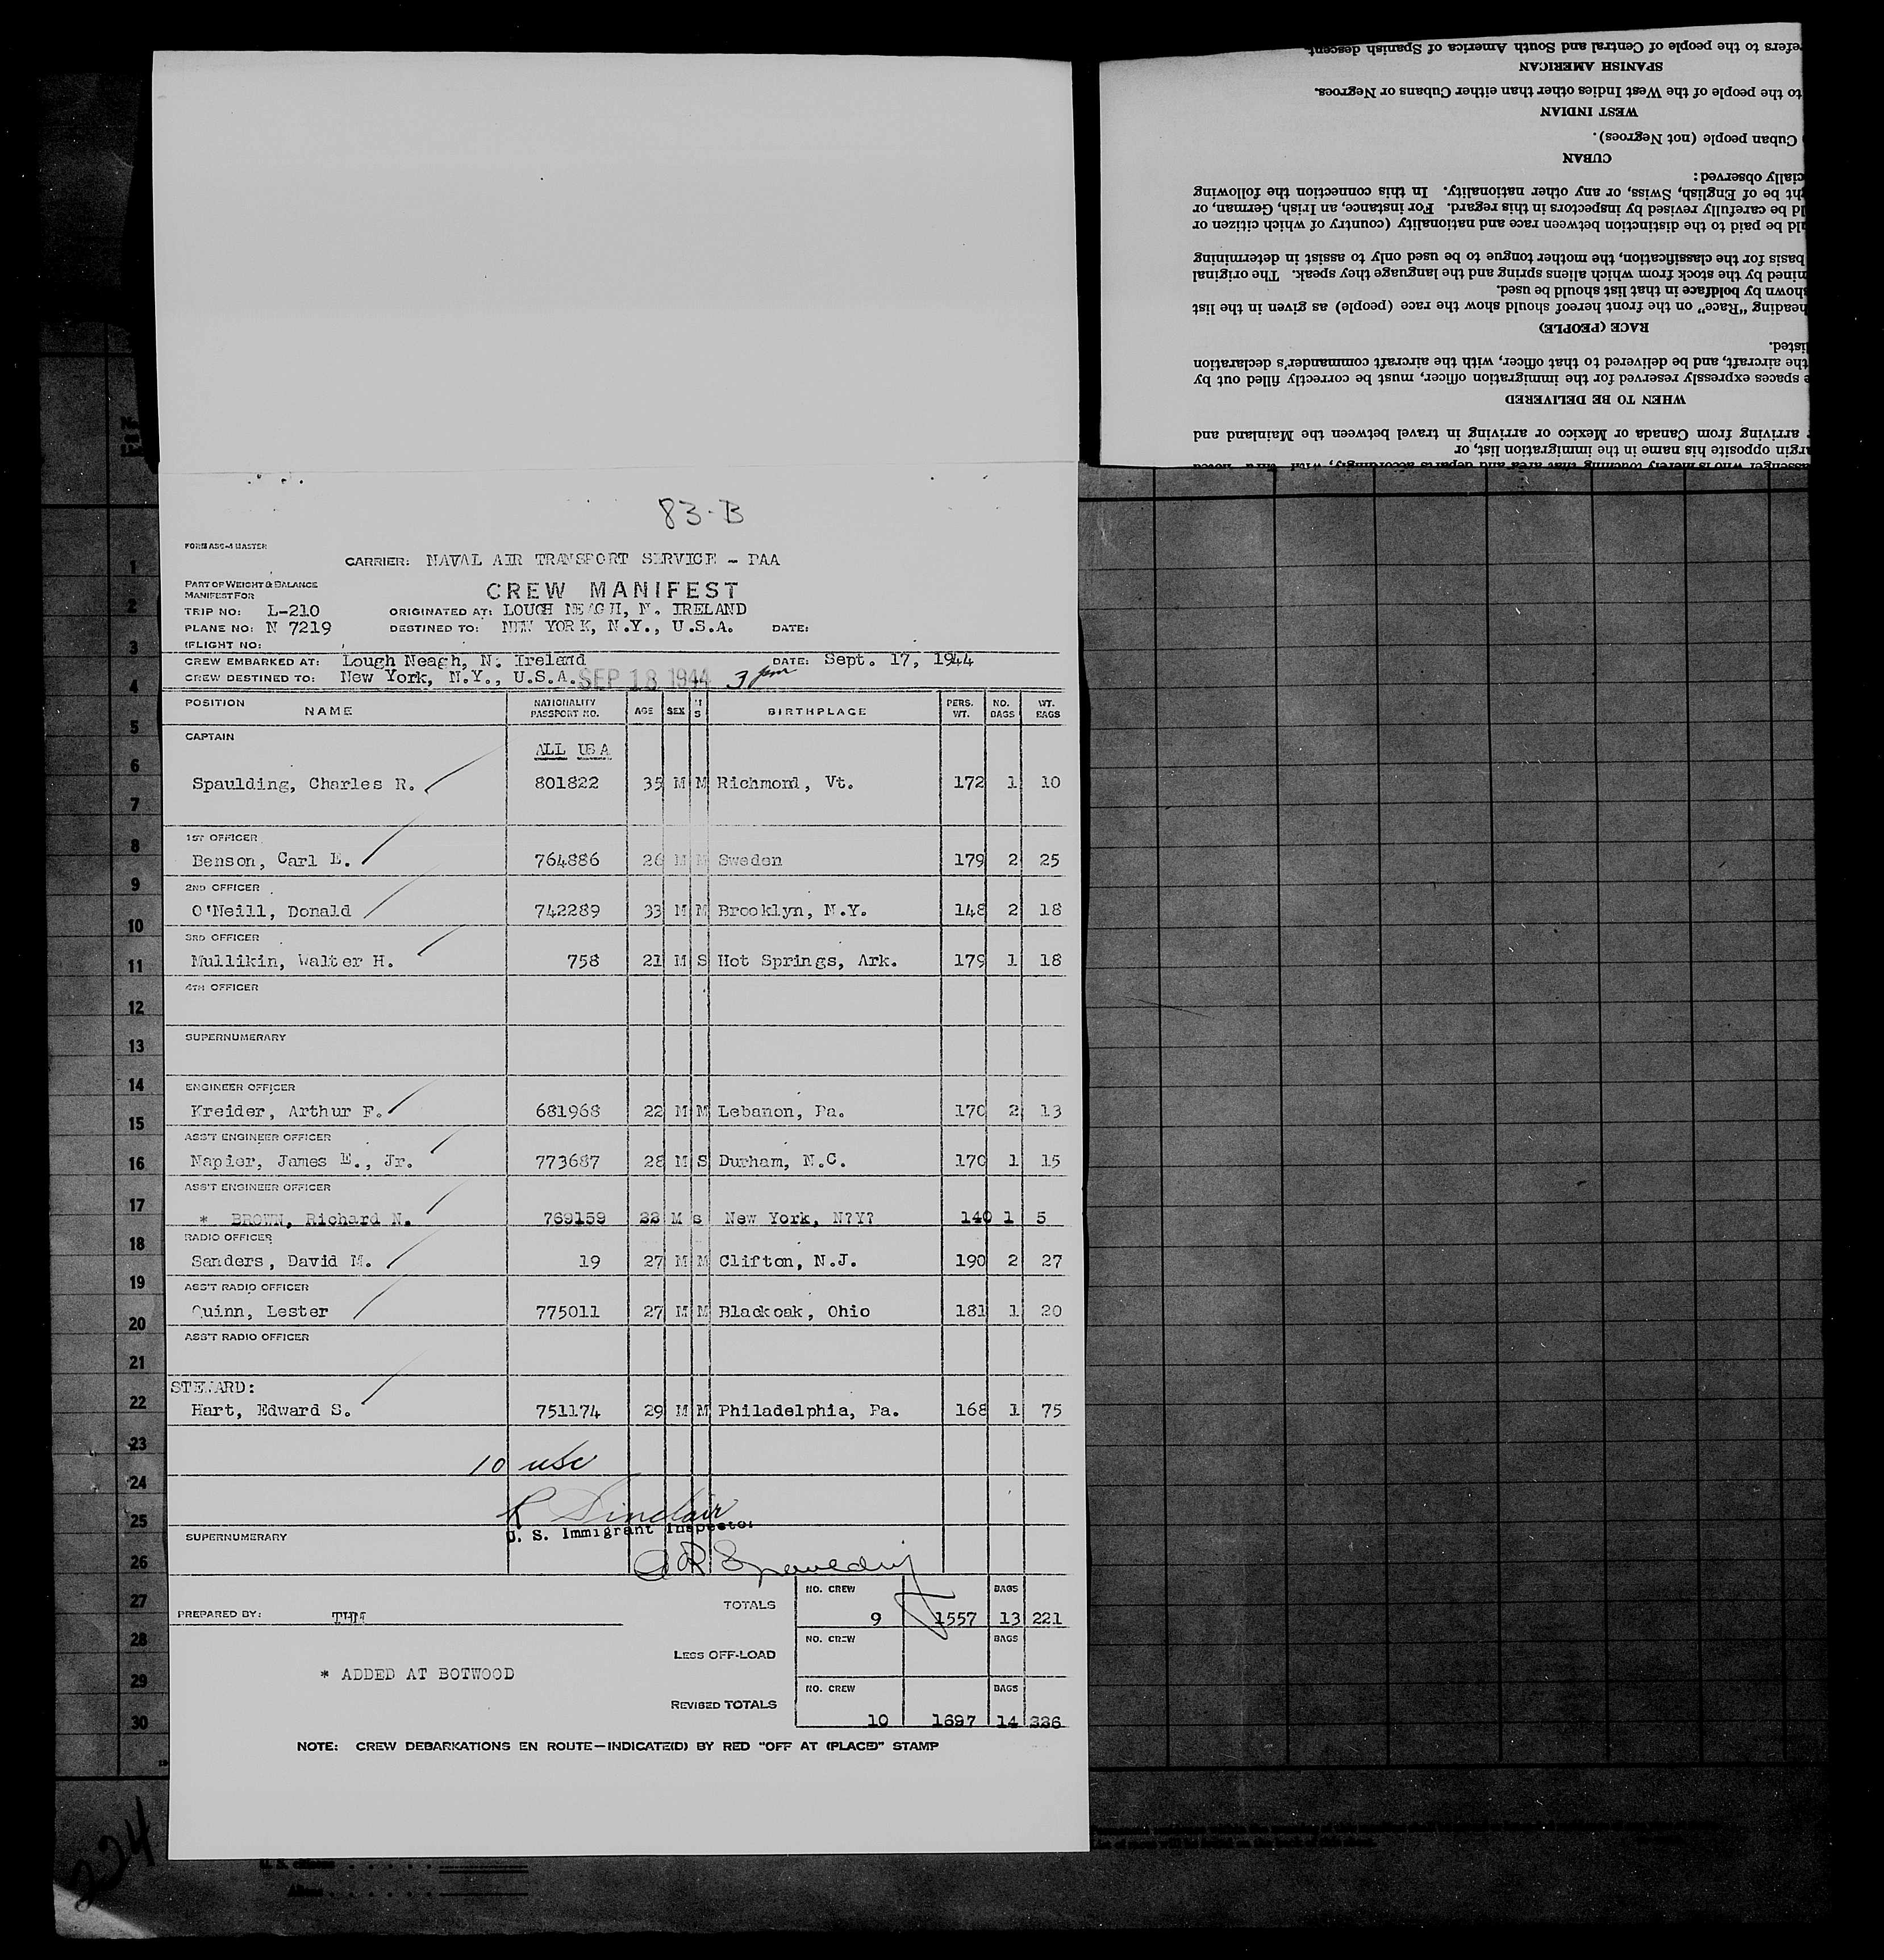 83-B
FORM ASC-4 MASTER
CARRIER: NAVAL AIR TRANSPORT SERVICE - PAA
PART OF WEIGHT & BALANCE
MANIFEST FOR
CREW MANIFEST
TRIP NO: L-210 ORIGINATED AT: LOUGH NEAGH, N. IRELAND
PLANE NO: N 7219 DESTINED TO: NEW YORK, N.Y., U.S.A. DATE:
(FLIGHT NO:
CREW EMBARKED AT: Lough Neagh, N. Ireland DATE: Sept. 17, 1944
CREW DESTINED TO: New York, N.Y., U.S.A. SEP 18 1944 3 pm
POSITION NAME NATIONALITY PASSPORT NO. AGE SEX S BIRTHPLACE PERS. WT. NO. BAGS WT. BAGS
CAPTAIN
ALL USA
Spaulding, Charles R. 801822 35 M M Richmond, Vt. 172 1 10
1ST OFFICER
Benson, Carl E. 764886 26 M M Sweden 179 2 25
2ND OFFICER
O'Neill, Donald 742289 33 M M Brooklyn, N.Y. 148 2 18
3RD OFFICER
Mullikin, Walter H. 758 21 M S Hot Springs, Ark. 179 1 18
4TH OFFICER
SUPERNUMERARY
ENGINEER OFFICER
Kreider, Arthur F. 681968 22 M M Lebanon, Pa. 170 2 13
ASS'T ENGINEER OFFICER
Napier, James E., Jr. 773687 28 M S Durham, N.C. 170 1 15
ASS'T ENGINEER OFFICER
* BROWN, Richard N. 769159 22 M s New York, N?Y? 140 1 5
RADIO OFFICER
Sanders, David M. 19 27 M M Clifton, N.J. 190 2 27
ASS'T RADIO OFFICER
Quinn, Lester 775011 27 M M Blackoak, Ohio 181 1 20
ASS'T RADIO OFFICER
STEWARD:
Hart, Edward S. 751174 29 M M Philadelphia, Pa. 168 1 75
10 USC
R Sinclair
U. S. Immigrant Inspector
SUPERNUMERARY
C R Spaulding
NO. CREW BAGS
TOTALS 9 1557 13 221
PREPARED BY: THM
NO. CREW BAGS
LESS OFF-LOAD
* ADDED AT BOTWOOD
NO. CREW BAGS
REVISED TOTALS 10 1697 14 226
NOTE: CREW DEBARKATIONS EN ROUTE—INDICATE(D) BY RED "OFF AT (PLACE)" STAMP
1
2
3
4
5
6
7
8
9
10
11
12
13
14
15
16
17
18
19
20
21
22
23
24
25
26
27
28
29
30
224
U. S. citizens
Aliens
arriving from Canada or Mexico or arriving in travel between the Mainland and
argin opposite his name in the immigration list, or
WHEN TO BE DELIVERED
spaces expressly reserved for the immigration officer, must be correctly filled out by
the aircraft, and be delivered to that officer, with the aircraft commander's declaration
listed.
RACE (PEOPLE)
heading "Race" on the front hereof should show the race (people) as given in the list
shown by boldface in that list should be used.
mined by the stock from which aliens spring and the language they speak. The original
basis for the classification, the mother tongue to be used only to assist in determining
uld be paid to the distinction between race and nationality (country of which citizen or
ld be carefully revised by inspectors in this regard. For instance, an Irish, German, or
ht be of English, Swiss, or any other nationality. In this connection the following
cially observed:
CUBAN
Cuban people (not Negroes).
WEST INDIAN
to the people of the West Indies other than either Cubans or Negroes.
SPANISH AMERICAN
refers to the people of Central and South America of Spanish descent.